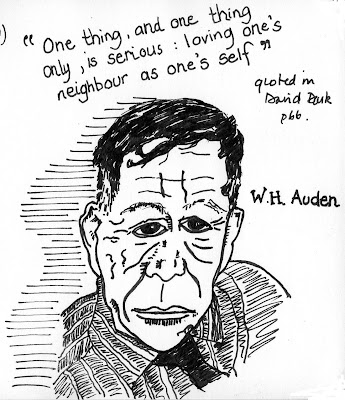 ) " One thing, and one thing
only, is serious : loving one's
neighbour as one's self "
quoted in
David
p66.
W.H. Auden